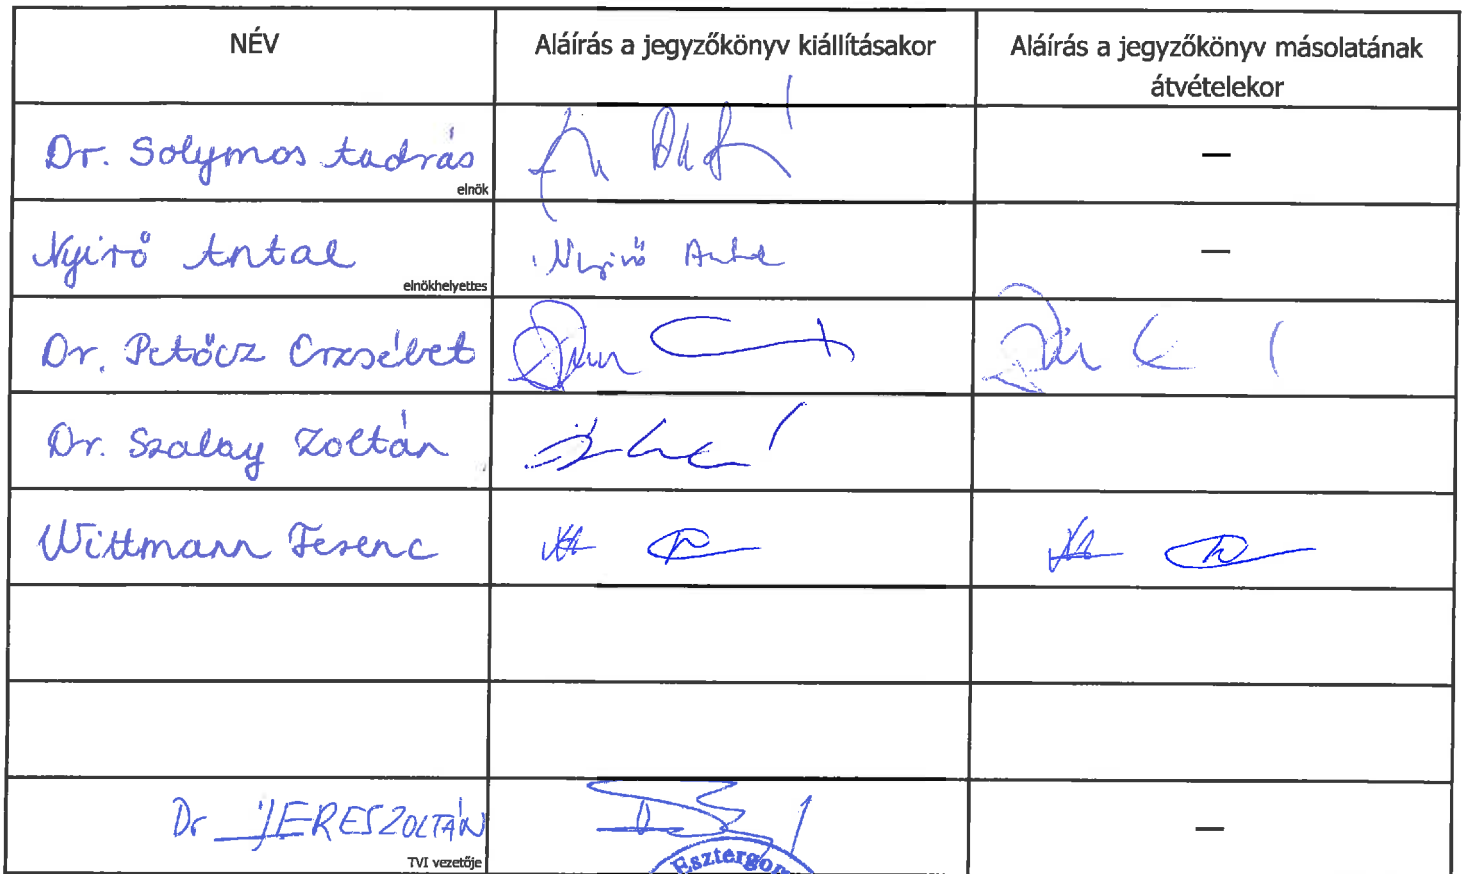 NÉV
Aláírás a jegyzőkönyv kiállításakor
Aláírás a jegyzőkönyv másolatának
átvételekor
Dr. Solymos András
elnök
—
Nyirő Antal
elnökhelyettes
Nyirő Antal
—
Dr. Petőcz Erzsébet
Dr. Szalay Zoltán
Wittmann Ferenc
Dr JERES ZOLTÁN
TVI vezetője
Esztergom
—